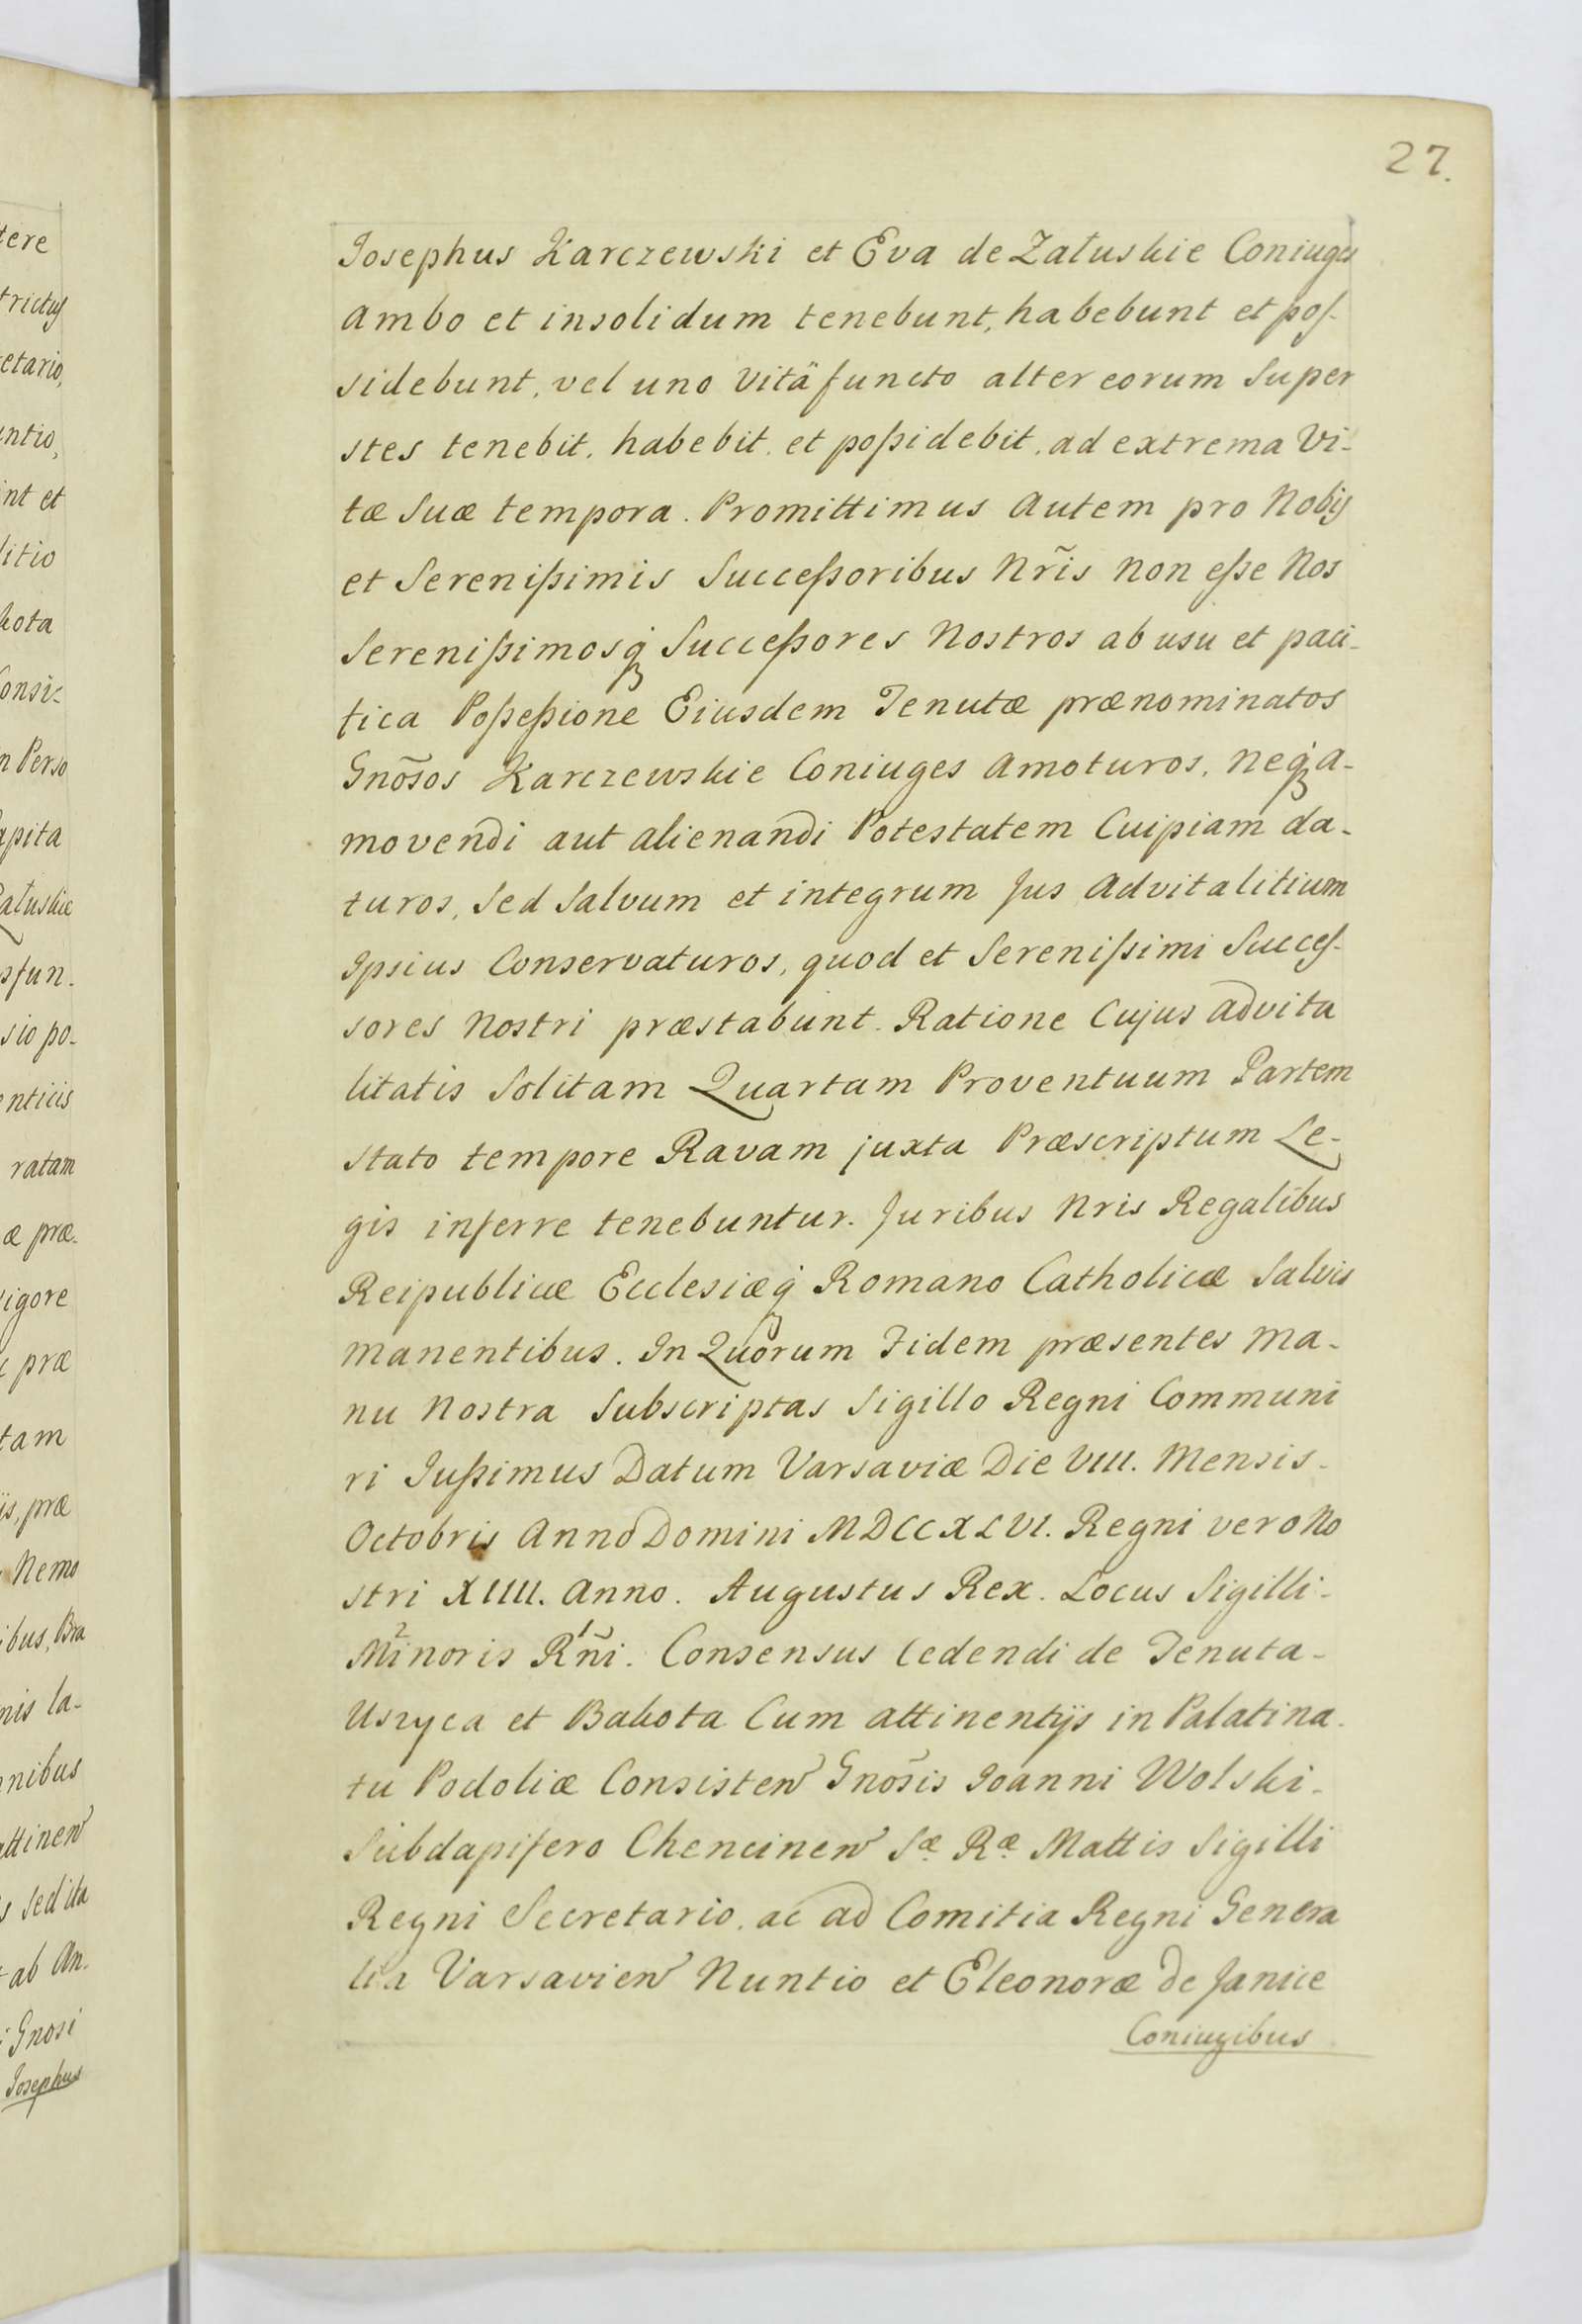 27.
Josephus Karczewski et Eva de Załuskie Coniuges
Ambo et insolidum tenebunt, habebunt et pos-
sidebunt, vel uno vitä functo alter eorum Super
stes tenebit, habebit et poßidebit, ad extrema Vi-
tæ Suæ tempora. Promittimus Autem pro Nobis
et Serenißimis Succeßoribus Nr̃is Non eße Nos
Serenißimosq Succeßores Nostros ab usu et paci-
fica Poßeßione Eiusdem Tenutæ prænominatos
Gnõsos Karczewskie Coniuges Amoturos, Neq A-
movendi aut alienandi Potestatem Cuipiam da-
turos, Sed Salvum et integrum Jus Advitalitium
Ipsius Conservaturos, quod et Serenissimi Succes-
sores Nostri præstabunt. Ratione Cujus advita
litatis Solitam Quartam Proventuum Partem
Stato tempore Ravam juxta Præscriptum Le-
gis inferre tenebuntur. Juribus Nris Regalibus
Reipublicæ Ecclesiæq Romano Catholicæ Salvis
manentibus. In Quorum Fidem præsentes Ma-
nu Nostra Subscriptas Sigillo Regni Communi
ri Jußimus Datum Varsaviæ Die VIII. Mensis-
Octobris Anno Domini MDCCXLVI. Regni vero No
stri XIIII. Anno. Augustus Rex. Locus Sigilli-
Minoris Rñi. Consensus Cedendi de Tenuta-
Uszyca et Bakota Cum attinentijs in Palatina-
tu Podoliæ Consisten Gnõsis Joanni Wolski-
Subdapifero Chencinen Sæ Ræ Mattis Sigilli
Regni Secretario, ac ad Comitia Regni Genera
lia Varsavien Nuntio et Eleonoræ de Janice
Coniugibus
tere
etario,
nt et
litio
kota
Consi-
n Perso
pita
sfun-
sio po-
enticis
ratam
æ præ-
vigore
præ
tam
is, præ
Nemo
ibus, Bra
nis la-
nibus
attinen
s Sed ita
ab An-
Gnosi
Josephus